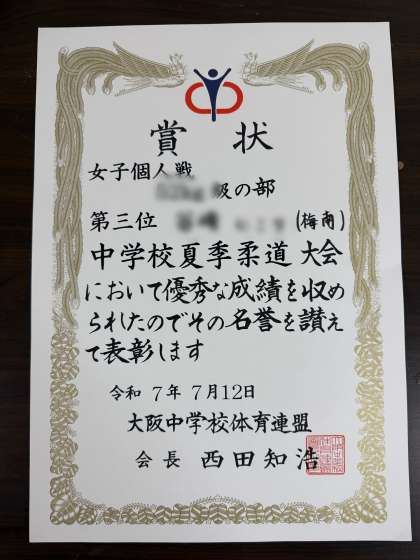 賞状
女子個人戦
級の部
第三位 (梅南)
中学校夏季柔道大会
において優秀な成績を収め
られたのでその名誉を讃え
て表彰します
令和7年7月12日
大阪中学校体育連盟
会長 西田知浩